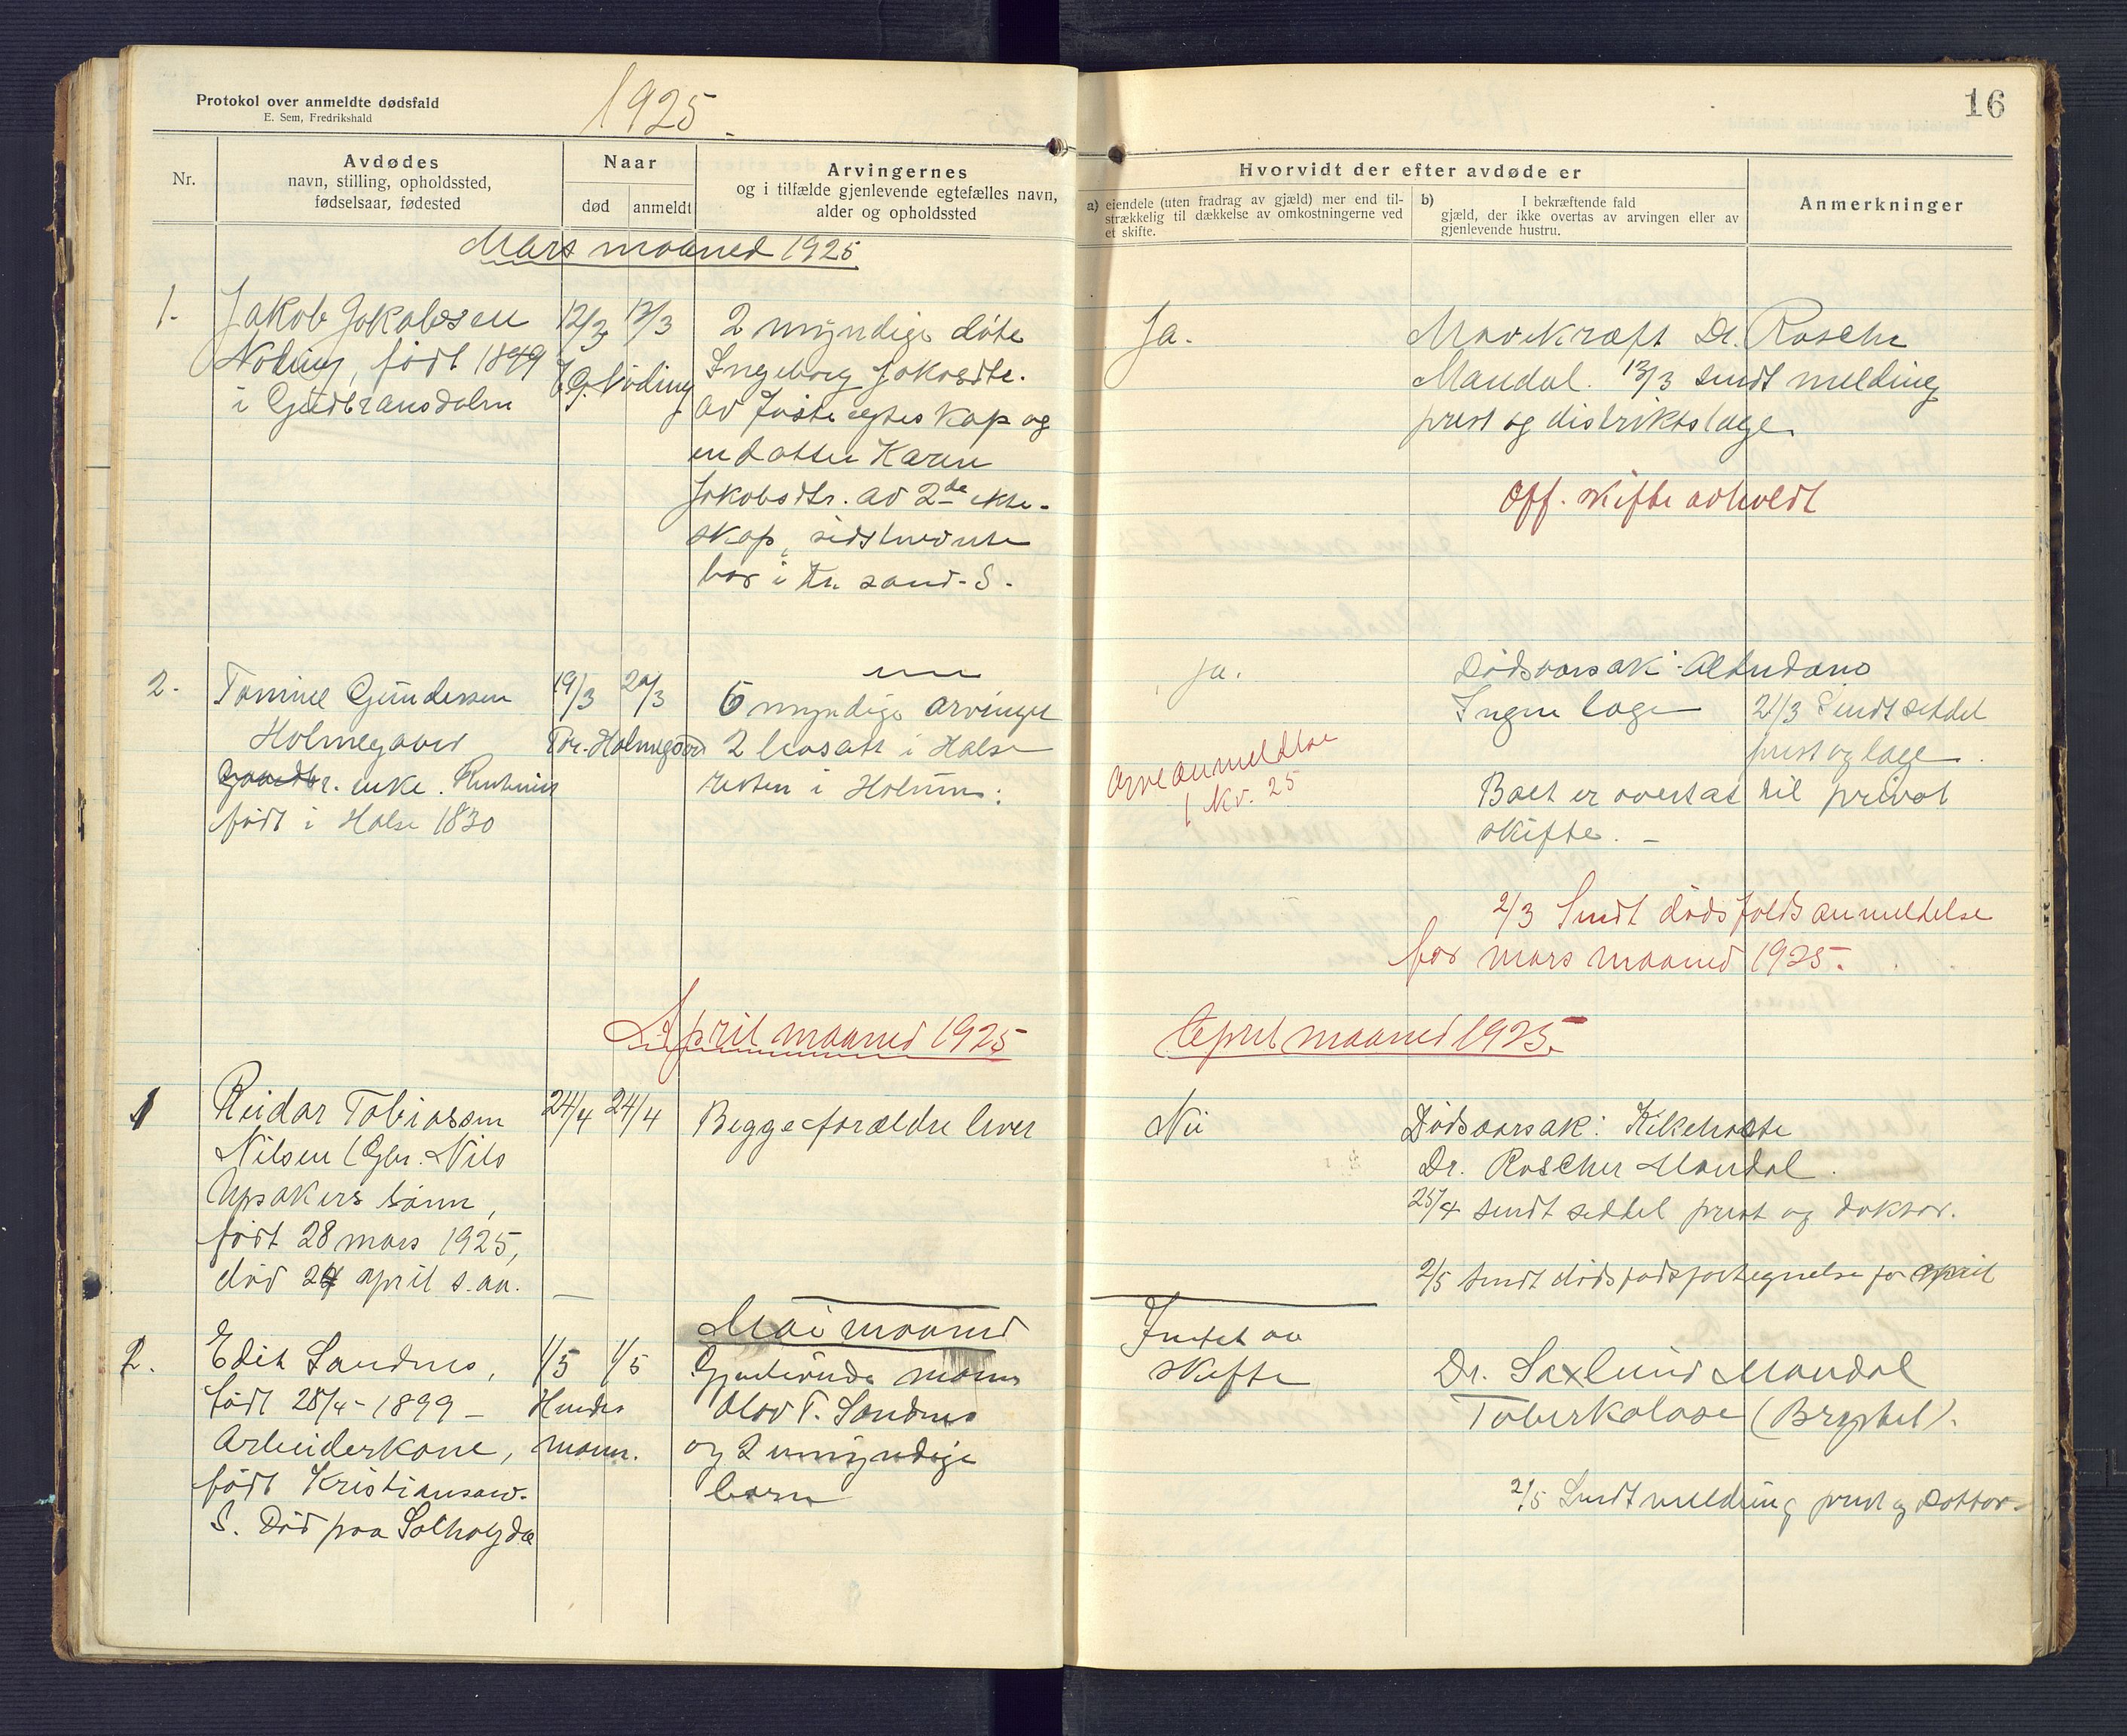 Protokol over anmeldte dødsfald
E. Sem, Fredrikshald
1925.
Nr.
Avdødes
navn, stilling, opholdssted,
fødselsaar, fødested
Naar
død
anmeldt
Arvingernes
og i tilfælde gjenlevende egtefælles navn,
alder og opholdssted
Mars maaned 1925
1.
Jakob Jakobsen
Noding, født 1849
i Gudbransdalen
12/3
13/3
Noding
2 myndige døte
Ingeborg Jakobdte.
av første egteskap og
en datter Karen
Jakobsdtr. av 2de ekte-
skap, sidstnevnte
bor i Kr. sand. S.
2.
Tomine Gundersen
Holmegaard
Gaardbr. enke.
født i Halse 1830
19/3
20/3
Holmegaard
6 myndige arvinger
2 bosatt i Halse
resten i Holum:
April maaned 1925
1
Reidar Tobiassen
Nilsen (Gbr. Nils
Upsakers sønn,
født 28 mars 1925,
død 24 april s.aa.
24/4
24/4
Begge forældre lever
Mai maaned
2.
Edit Sandnes,
født 28/4-1899 -
Arbeiderkone,
født Kristiansan.
S. Død paa Solhøgda
1/5
1/5
Hendes
mann.
Gjenlevende mann
Olav T. Sandnes
og 2 umyndige
barn
16
Hvorvidt der efter avdøde er
a) eiendele (uten fradrag av gjæld) mer end til-
strækkelig til dækkelse av omkostningerne ved
et skifte.
b) I bekræftende fald
gjæld, der ikke overtas av arvingen eller av
gjenlevende hustru.
Anmerkninger
Ja.
Mavekræft Dr. Roscher
Mandal. 13/3 sendt melding
prest og distriktslæge.
Off. skifte avholdt
Ja.
Dødsaarsak: Altudans
Ingen læge
21/3 Sendt seddel
prest og læge.
Arveanmeldelse
1 Kv. 25
Boet er overtat til privat
skifte. -
2/3 Sendt dødsfaldsanmeldelse
for mars maaned 1925.
April maaned 1925.
Nei
Dødsaarsak: Kikehoste
Dr. Roscher Mandal.
25/4 sendt seddel prest og doktor.
2/5 sendt dødsfadsfortegnelse for april
Intet aa
skifte
Dr. Saxlund Mandal
Tuberkolose (Brystet).
2/5 Sendt melding prest og Dottor.